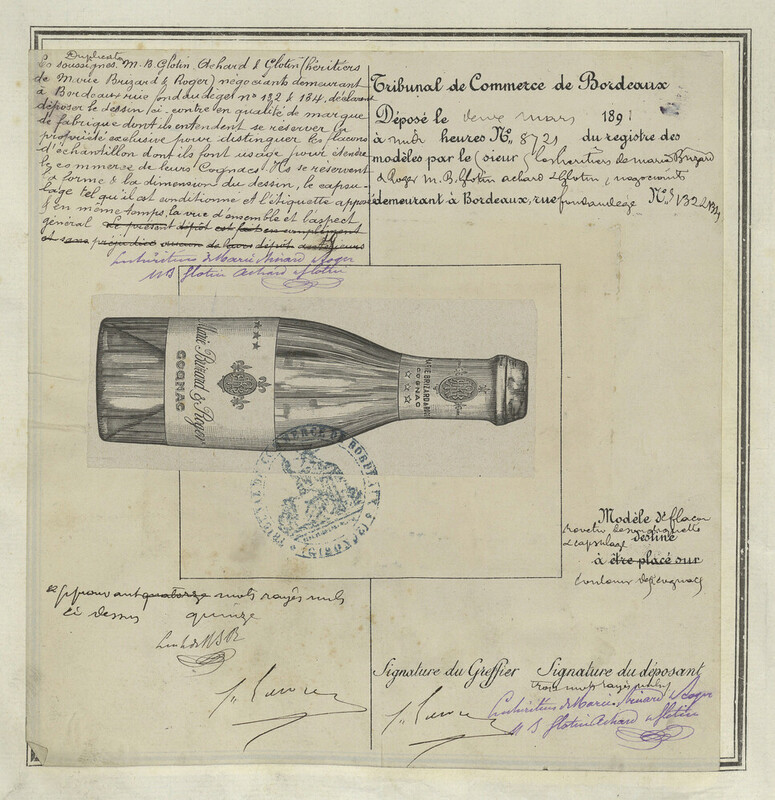 Duplicata
Les soussignés, M. B. Glotin, Achard & Glotin (héritiers
de M. vve Brizard & Roger) négociants demeurant
à Bordeaux rue fondaudège nos 132 & 134, déclarent
déposer le dessin ci contre en qualité de marque
de fabrique dont ils entendent se réserver la
propriété exclusive pour distinguer les flacons
d'échantillon dont ils font usage pour étendre
le commerce de leurs Cognacs. Ils se réservent
la forme & la dimension du dessin, le capsu-
lage tel qu'il est conditionné et l'étiquette apposée
& en même temps, la vue d'ensemble et l'aspect
général Le présent dépôt est fait en complément
et sans préjudice aucun de leurs dépôts antérieurs
Les héritiers de Marie Brizard & Roger
M B Glotin Achard & Glotin
Tribunal de Commerce de Bordeaux
Déposé le deux mars 1891
à midi heures No. 8721 du registre des
modèles par le sieur Les héritiers de Marie Brizard
& Roger M. B. Glotin Achard & Glotin, négociants
demeurant à Bordeaux, rue fondaudège Nos 132 & 134
Marie Brizard & Roger
COGNAC
MARIE BRIZARD & ROGER
COGNAC
TRIBUNAL DE COMMERCE DE BORDEAUX
Modèle de flacon
revêtu de son étiquette
& capsulage destiné
à être placé sur
contenir des cognacs
Approuvant quatorze mots rayés nuls
ci dessus quinze
Les h. de M B R
Signature du Greffier
Signature du déposant
trois mots rayés nuls
Les héritiers de Marie Brizard & Roger
M B Glotin Achard & Glotin